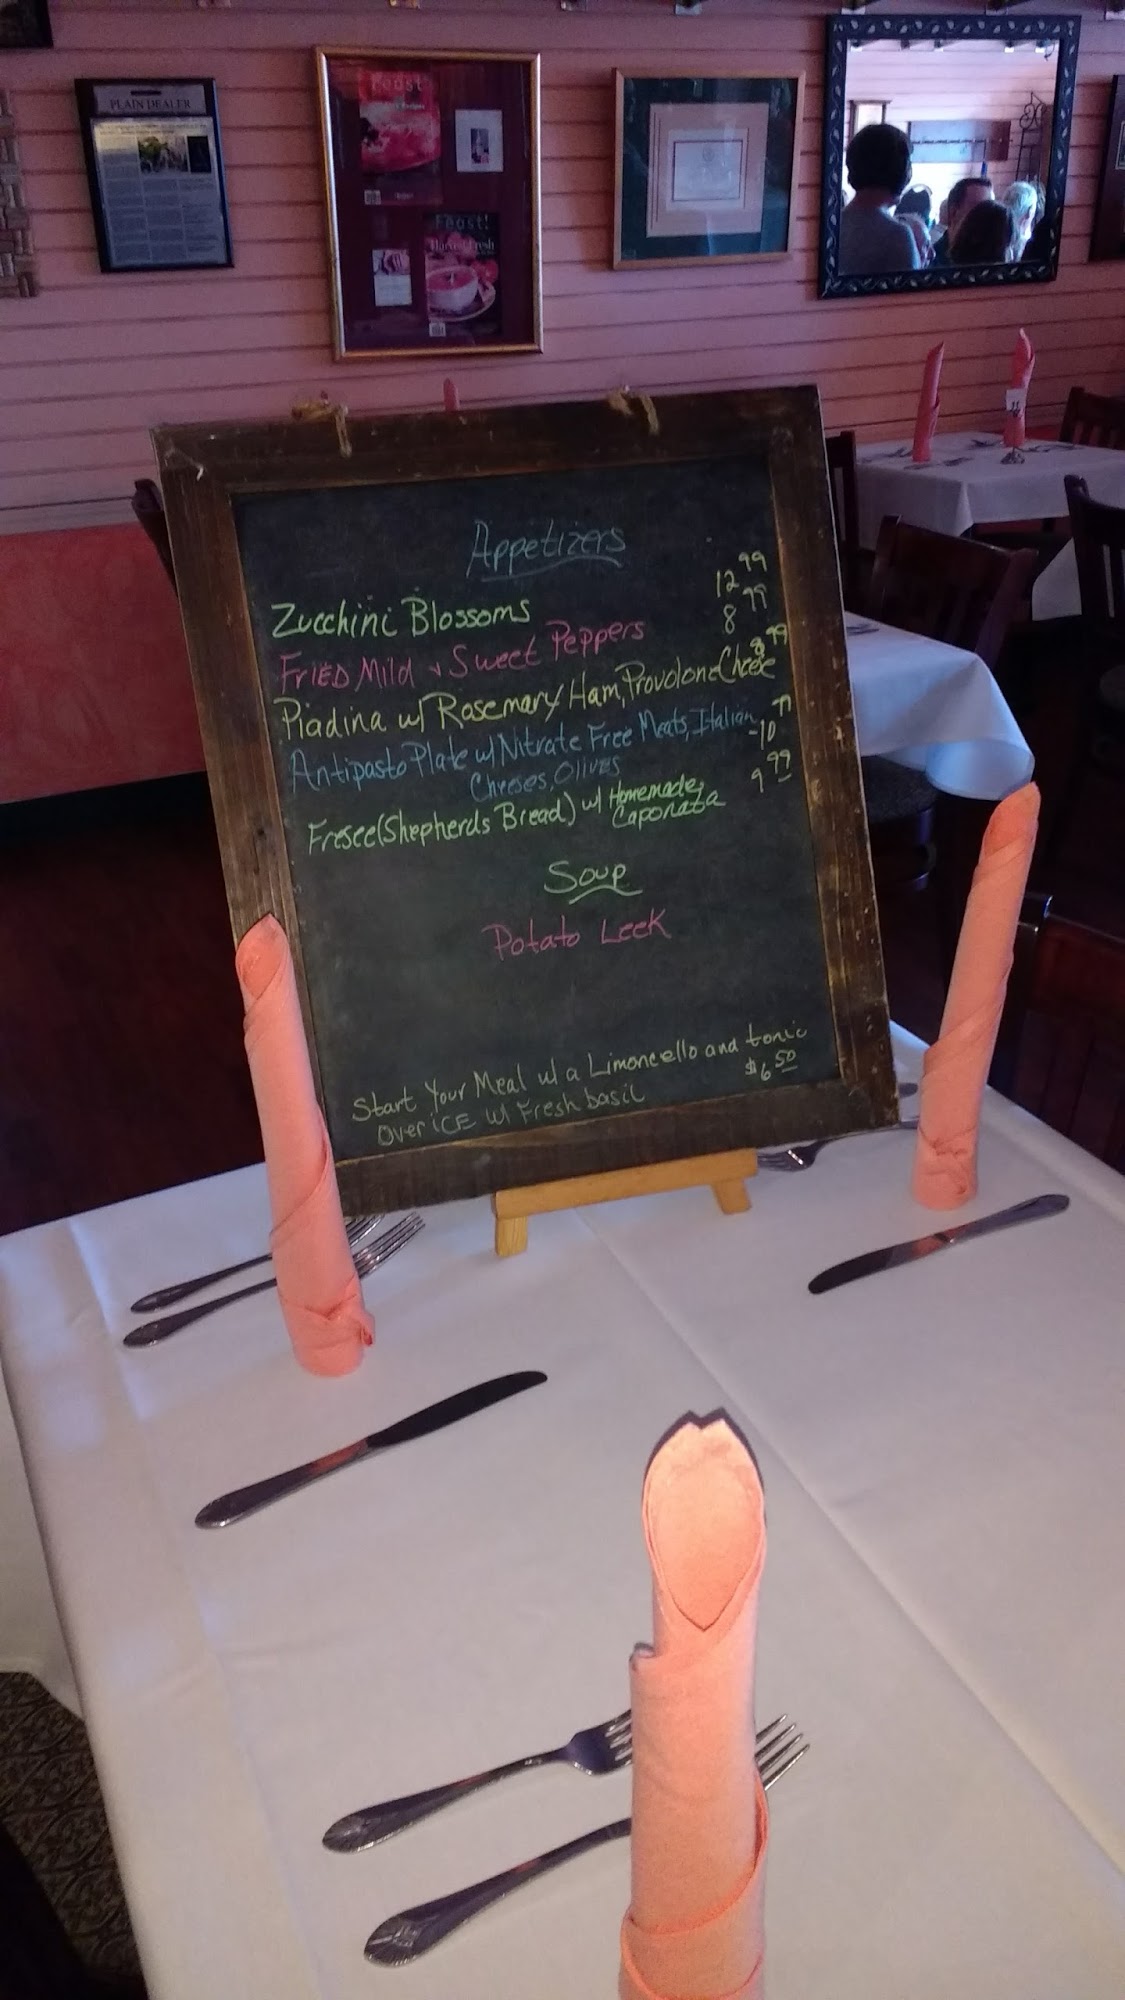 PLAIN DEALER
Feast!
Feast!
Harvest Fresh
Appetizers
Zucchini Blossoms 12 99
FRIED Mild & Sweet Peppers 8 99
Piadina w/ Rosemary Ham, Provolone Cheese 8 99
Antipasto Plate w/ Nitrate Free Meats, Italian -10
Cheeses, Olives
Fresee (Shepherds Bread) w/ Homemade 9 99
Caponata
Soup
Potato Leek
Start Your Meal w/ a Limoncello and tonic
Over ICE w/ Fresh basil $6 50